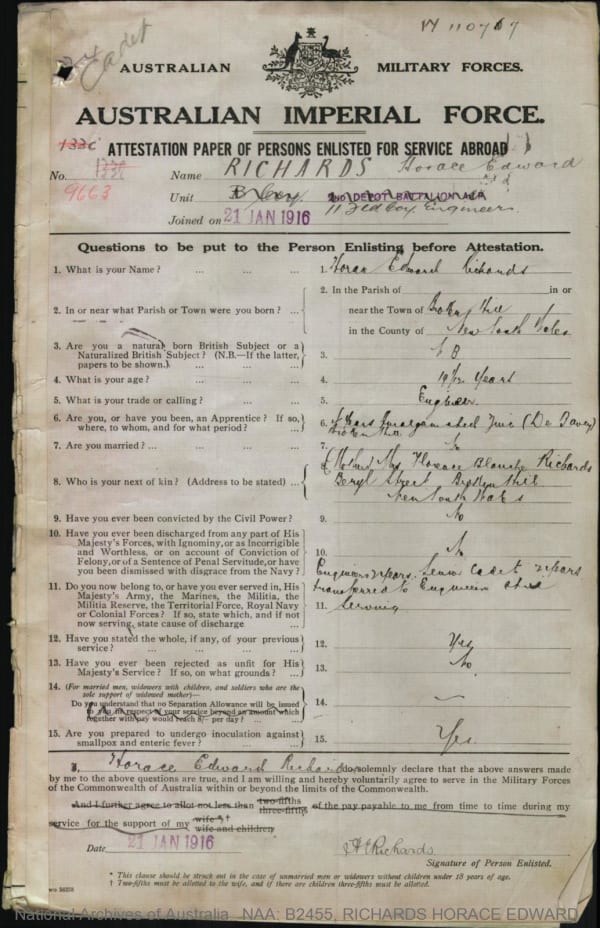 N 110717
Cadet
AUSTRALIAN MILITARY FORCES.
AUSTRALIAN IMPERIAL FORCE.
ATTESTATION PAPER OF PERSONS ENLISTED FOR SERVICE ABROAD
No. 9663 Name RICHARDS Horace Edward
Unit 2ND DEPOT BATTALION A.I.F.
Engineers
Joined on 21 JAN 1916
Questions to be put to the Person Enlisting before Attestation.
1. What is your Name? ... ... ... 1. Horace Edward Richards
2. In or near what Parish or Town were you born? ... 2. In the Parish of in or
near the Town of Broken Hill
in the County of New South Wales
3. Are you a natural born British Subject or a
Naturalized British Subject? (N.B.—If the latter,
papers to be shown.) ... 3. N B
4. What is your age? ... ... ... 4. 19 years
5. What is your trade or calling? ... ... 5. Engineer
6. Are you, or have you been, an Apprentice? If so,
where, to whom, and for what period? ... 6. Amalgamated Zinc (De Bavay)
Broken Hill
7. Are you married? ... ... ... 7. No
8. Who is your next of kin? (Address to be stated) ... 8. (Mother) Mrs. Florence Blanche Richards
Beryl Street Broken Hill
New South Wales
9. Have you ever been convicted by the Civil Power? 9. No
10. Have you ever been discharged from any part of His
Majesty's Forces, with Ignominy, or as Incorrigible
and Worthless, or on account of Conviction of
Felony, or of a Sentence of Penal Servitude, or have
you been dismissed with disgrace from the Navy? 10. No
11. Do you now belong to, or have you ever served in, His
Majesty's Army, the Marines, the Militia, the
Militia Reserve, the Territorial Force, Royal Navy
or Colonial Forces? If so, state which, and if not
now serving, state cause of discharge 11. Engineers 2 years. Senior Cadet 2 years
transferred to Engineers still
serving
12. Have you stated the whole, if any, of your previous
service? ... ... ... 12. Yes
13. Have you ever been rejected as unfit for His
Majesty's Service? If so, on what grounds? ... 13. No
14. (For married men, widowers with children, and soldiers who are the
sole support of widowed mother)—
Do you understand that no Separation Allowance will be issued
to you in respect of your service beyond an amount which
together with pay would reach 8/- per day? ... 14. —
15. Are you prepared to undergo inoculation against
smallpox and enteric fever? ... ... 15. Yes.
I, Horace Edward Richards do solemnly declare that the above answers made
by me to the above questions are true, and I am willing and hereby voluntarily agree to serve in the Military Forces
of the Commonwealth of Australia within or beyond the limits of the Commonwealth.
And I further agree to allot not less than two-fifths three-fifths of the pay payable to me from time to time during my
service for the support of my wife*† wife and children
Date 21 JAN 1916 H E Richards
Signature of Person Enlisted.
* This clause should be struck out in the case of unmarried men or widowers without children under 18 years of age.
† Two-fifths must be allotted to the wife, and if there are children three-fifths must be allotted.
National Archives of Australia NAA: B2455, RICHARDS HORACE EDWARD